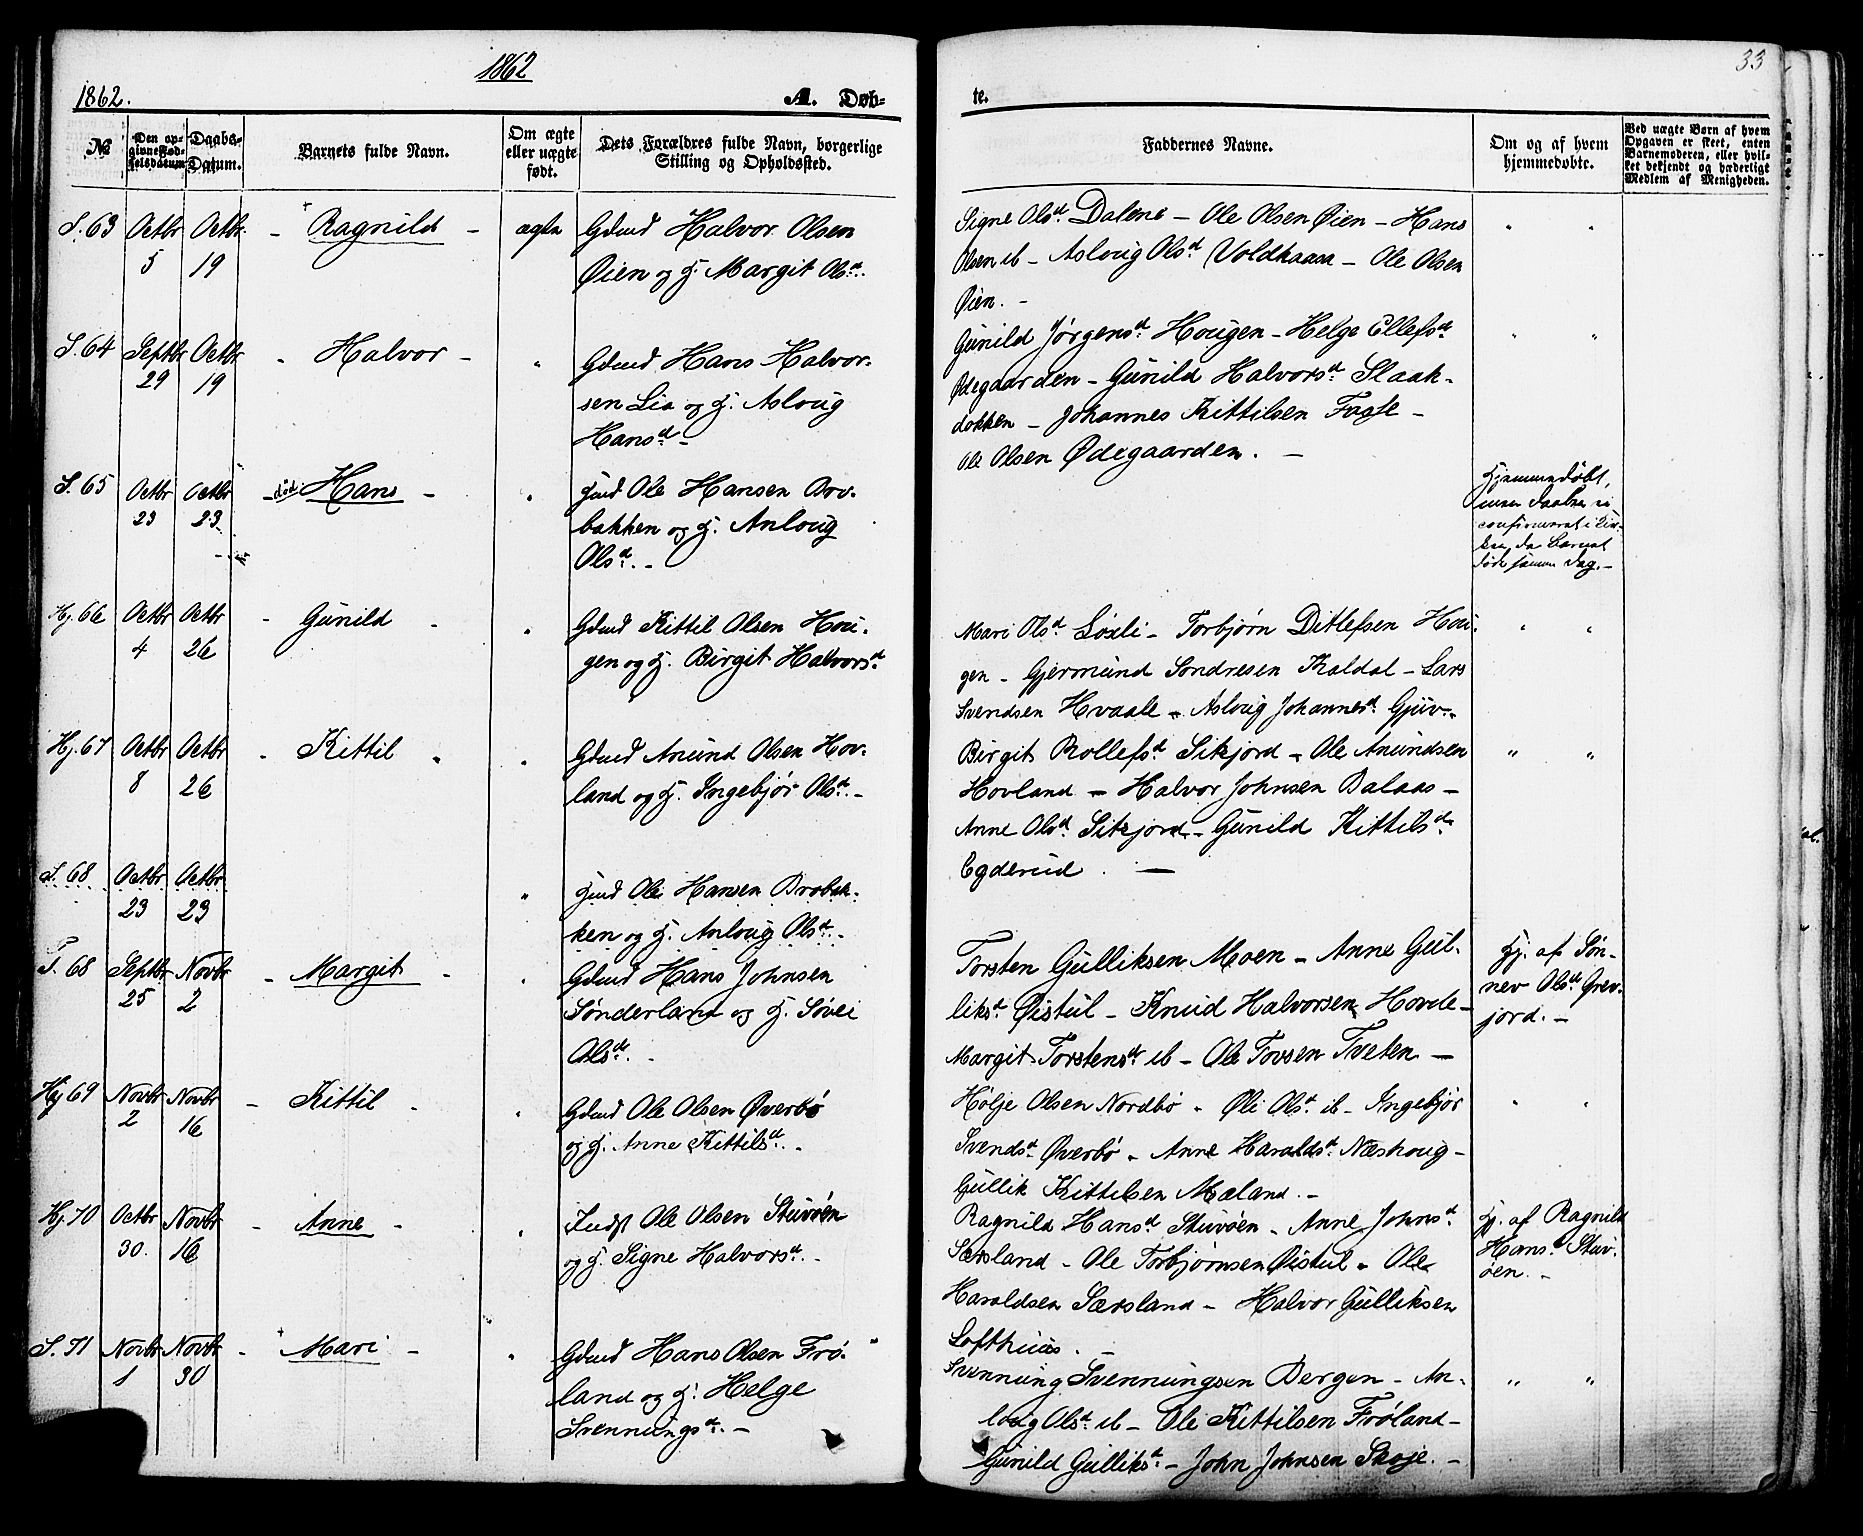 1862
1862.
A. Døb-
№
Den op-
givne Fød-
selsdatum
Daabs-
Datum.
Barnets fulde Navn.
Om ægte
eller uægte
født.
Dets Forældres fulde Navn, borgerlige
Stilling og Opholdssted.
S. 63 Octbr Octbr. - Ragnild - ægte Gdmd Halvor Olsen
5 19 Øien og H. Margit Olsd.
S. 64 Septbr Octbr - Halvor - " Gdmd Hans Halvor-
29 19 sen Lia og H. Asloug
Hansd. -
S. 65 Octbr Octbr - død Hans - " Ole Hansen Bro-
23 23 bakken og H. Anloug
Olsd. -
Hj. 66 Octbr Octbr - Gunild - " Gdmd Kittil Olsen Hou-
4 26 gen og H. Birgit Halvorsd.
Hj. 67 Octbr Octbr - Kittil - " Gdmd Anund Olsen Hov-
8 26 land og H. Ingebjør Olsd. -
S. 68 Octbr Octbr " Ole Hansen Brobak-
23 23 ken og H. Anloug Olsd. -
T. 68 Septbr Novbr - Margit - " Gdmd Hans Johnsen
25 2 Sønderland og H. Søvei
Olsd. -
Hj 69 Novbr Novbr - Kittil - " Gdmd Ole Olsen Øverbø
2 16 og H. Anne Kittilsd. -
Hj. 70 Octbr Novbr - Anne - " Indst Ole Olsen Stuvøen
30. 16 og H. Signe Halvorsd. -
S. 71 Novbr Novbr - Mari - " Gdmd Hans Olsen Frø-
1 30 land og H. Helge
Svennungsd. -
33
te.
Faddernes Navne.
Om og af hvem
hjemmedøbte.
Ved uægte Børn af hvem
Opgaven er skeet, enten
Barnemoderen, eller hvil-
ket bekjendt og hæderligt
Medlem af Menigheden.
Signe Olsd. Dalene - Ole Olsen Øien - Hans " "
Olsen ib - Asloug Olsd. Voldkaasa - Ole Olsen
Øien. -
Gunild Jørgensd. Hougen - Helge Ellefsd. " "
Ødegaarden - Gunild Halvorsd. Slaak-
dokken - Johannes Kittilsen
Ole Olsen Ødegaarden. -
Hjemmedøbt,
men Daaben ei
confirmeret i Kir-
ken, da Barnet
døde samme Dag. -
Mari Olsd. Løxli - Torbjørn Ditlefsen Hou- " "
gen - Gjermund Sondresen Kaldal - Lars
Svendsen Hvaale - Asloug Johannesd. Gjuv -
Birgit Rollefsd. Sitjord - Ole Anundsen " "
Hovland - Halvor Johnsen Balaas -
Anne Olsd. Sitjord - Gunild Kittilsd.
Egderud. -
Torsten Gulliksen Moen - Anne Gul- Hj. af Søn-
liksd. Øistul - Knud Halvorsen Hovde - nev Olsd. Grev-
Margit Torstensd. ib - Ole Tovsen Tveten - jord. -
Hølje Olsen Nordbø - Øli Olsd. ib - Ingebjør " "
Svendsd. Øverbø - Anne Haraldsd. Næshoug -
Gullik Kittilsen Mæland. -
Ragnild Hansd. Stuvøen - Anne Johnsd. Hj. af Ragnild
Særsland - Ole Torbjørnsen Øistul - Ole Hansd. Stuv-
Haraldsen Særsland - Halvor Gulliksen øen. -
Lofthuus. -
Svennung Svennungsen Bergen - An- " "
loug Olsd. ib - Ole Kittilsen Frøland -
Gunild Gulliksd. - John Johnsen Skoje. -